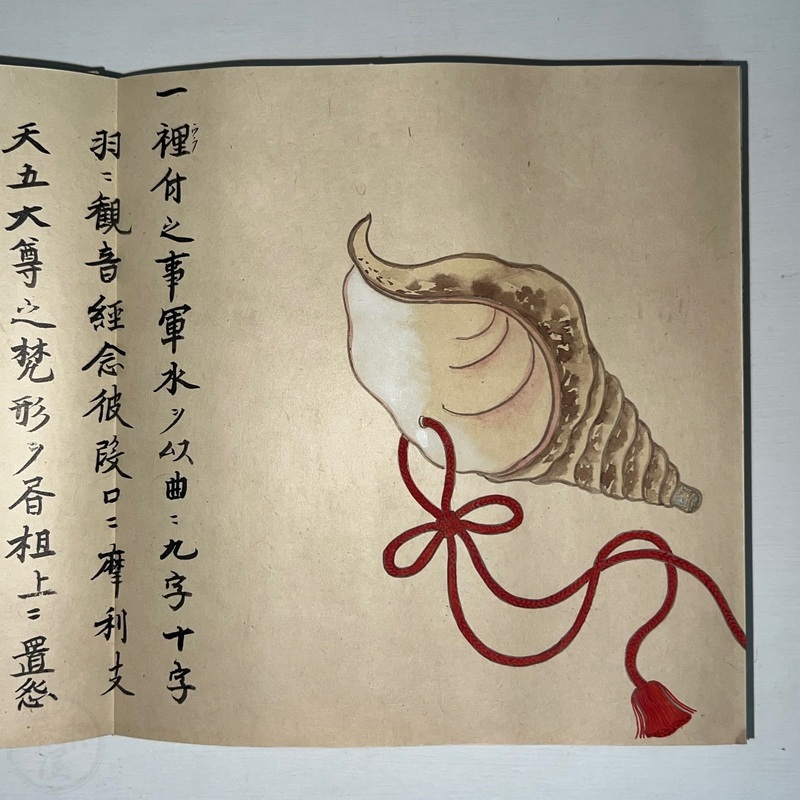 一裡付之事軍水ヲ以曲ニ九字十字
ウラ
羽ニ観音經念彼段口ニ摩利支
天五大尊之梵形ヲ柤上ニ置怨